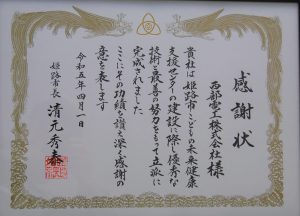 感謝状
西部電工株式会社様
貴社は姫路市こどもの未来健康
支援センターの建設に際し優秀な
技術と最善の努力をもって立派に
完成されました
ここにその功績を讃え深く感謝の
意を表します
令和五年四月一日
姫路市長 清元秀泰